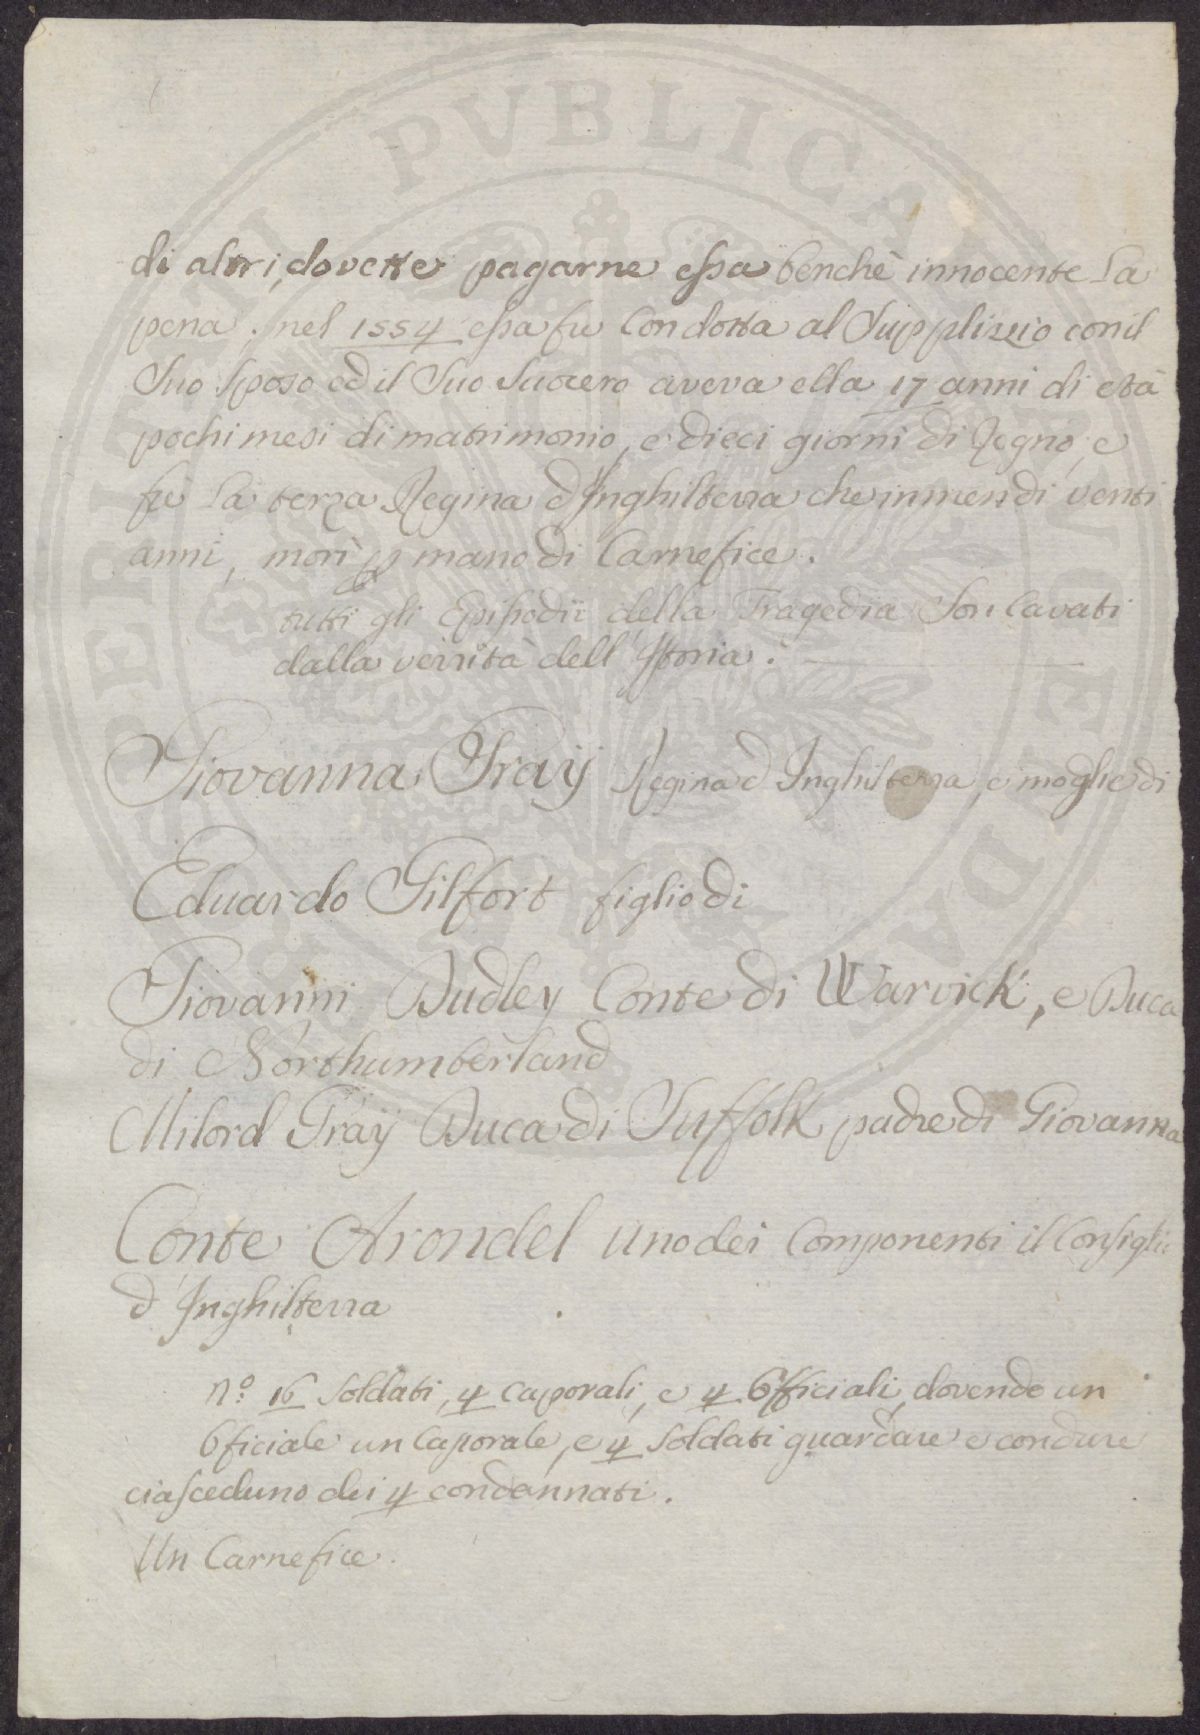 di altri, dovette pagarne essa benchè innocente La
pena. nel 1554 essa fu Condotta al Supplizio con il
Suo Sposo ed il Suo Suocero aveva ella 17 anni di età
pochi mesi di matrimonio, e dieci giorni di Regno, e
fu La terza Regina d'Inghilterra che in men di venti
anni, morì p mano di Carnefice.
tutti gli Episodii della Tragedia Son Cavati
dalla verrità dell'Istoria.
Giovanna Gray Regina d'Inghilterra, e moglie di
Eduardo Gilfort figlio di
Giovanni Dudley Conte di Warvick, e Duca
di Northumberland
Milord Gray Duca di Suffolk padre di Giovanna
Conte Arondel uno dei Componenti il Consiglio
d'Inghilterra
N.º 16 Soldati, 4 Caporali, e 4 Officiali, dovendo un
Oficiale un Caporale, e 4 Soldati guardare e condure
ciasceduno dei 4 condannati.
Un Carnefice.
PUBLICAE